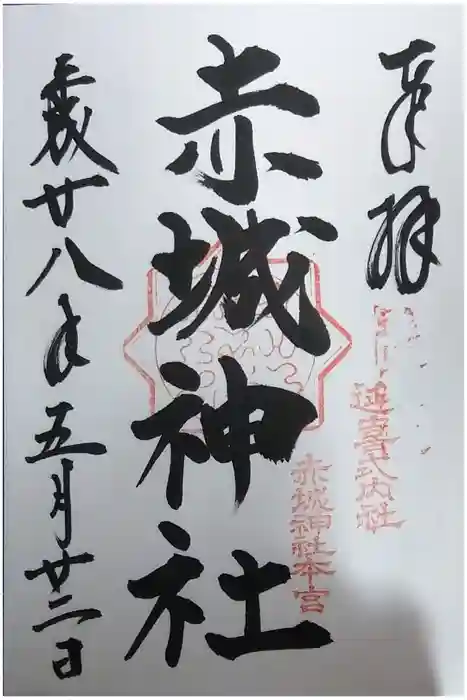 奉拝
延喜式内社
赤城神社本宮
赤城神社
平成廿八年五月廿二日